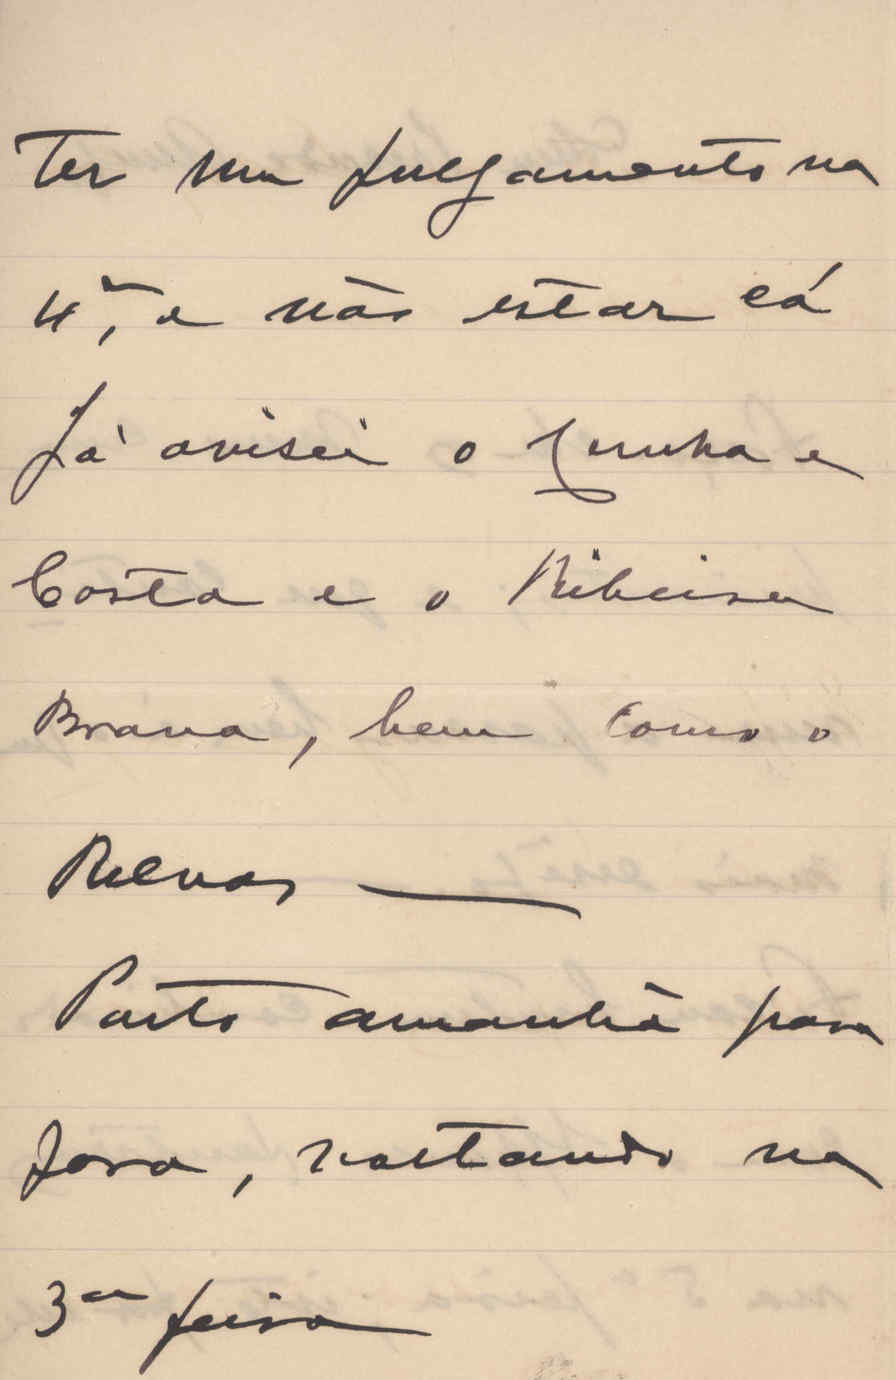 Ter um julgamento na
4ª, e não estar cá
Já avisei o Cunha e
Costa e o Ribeira
Brava, bem como o
Relvas —
Parto amanhã para
fora, voltando na
3ª feira